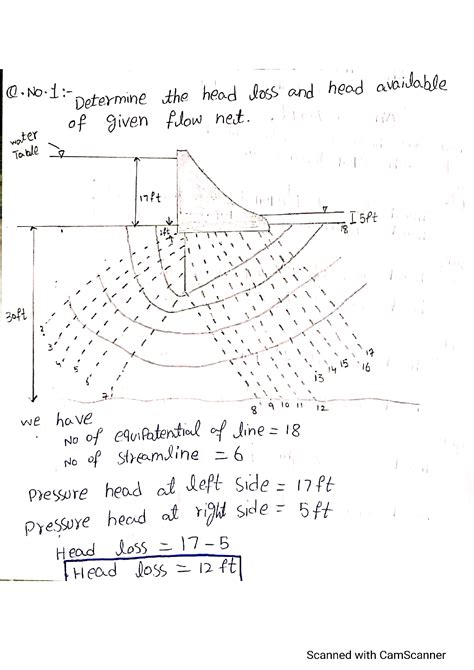 Q.No.1:- Determine the head loss and head available
of given flow net.
water
Table
17ft
2ft
5ft
18
30ft
2
3
4
5
6
7
8 9 10 11 12
13 14 15 16 17
we have
No of equipatential of line = 18
No of streamline = 6
Pressure head at left side = 17ft
Pressure head at right side = 5ft
Head loss = 17-5
Head loss = 12ft
Scanned with CamScanner